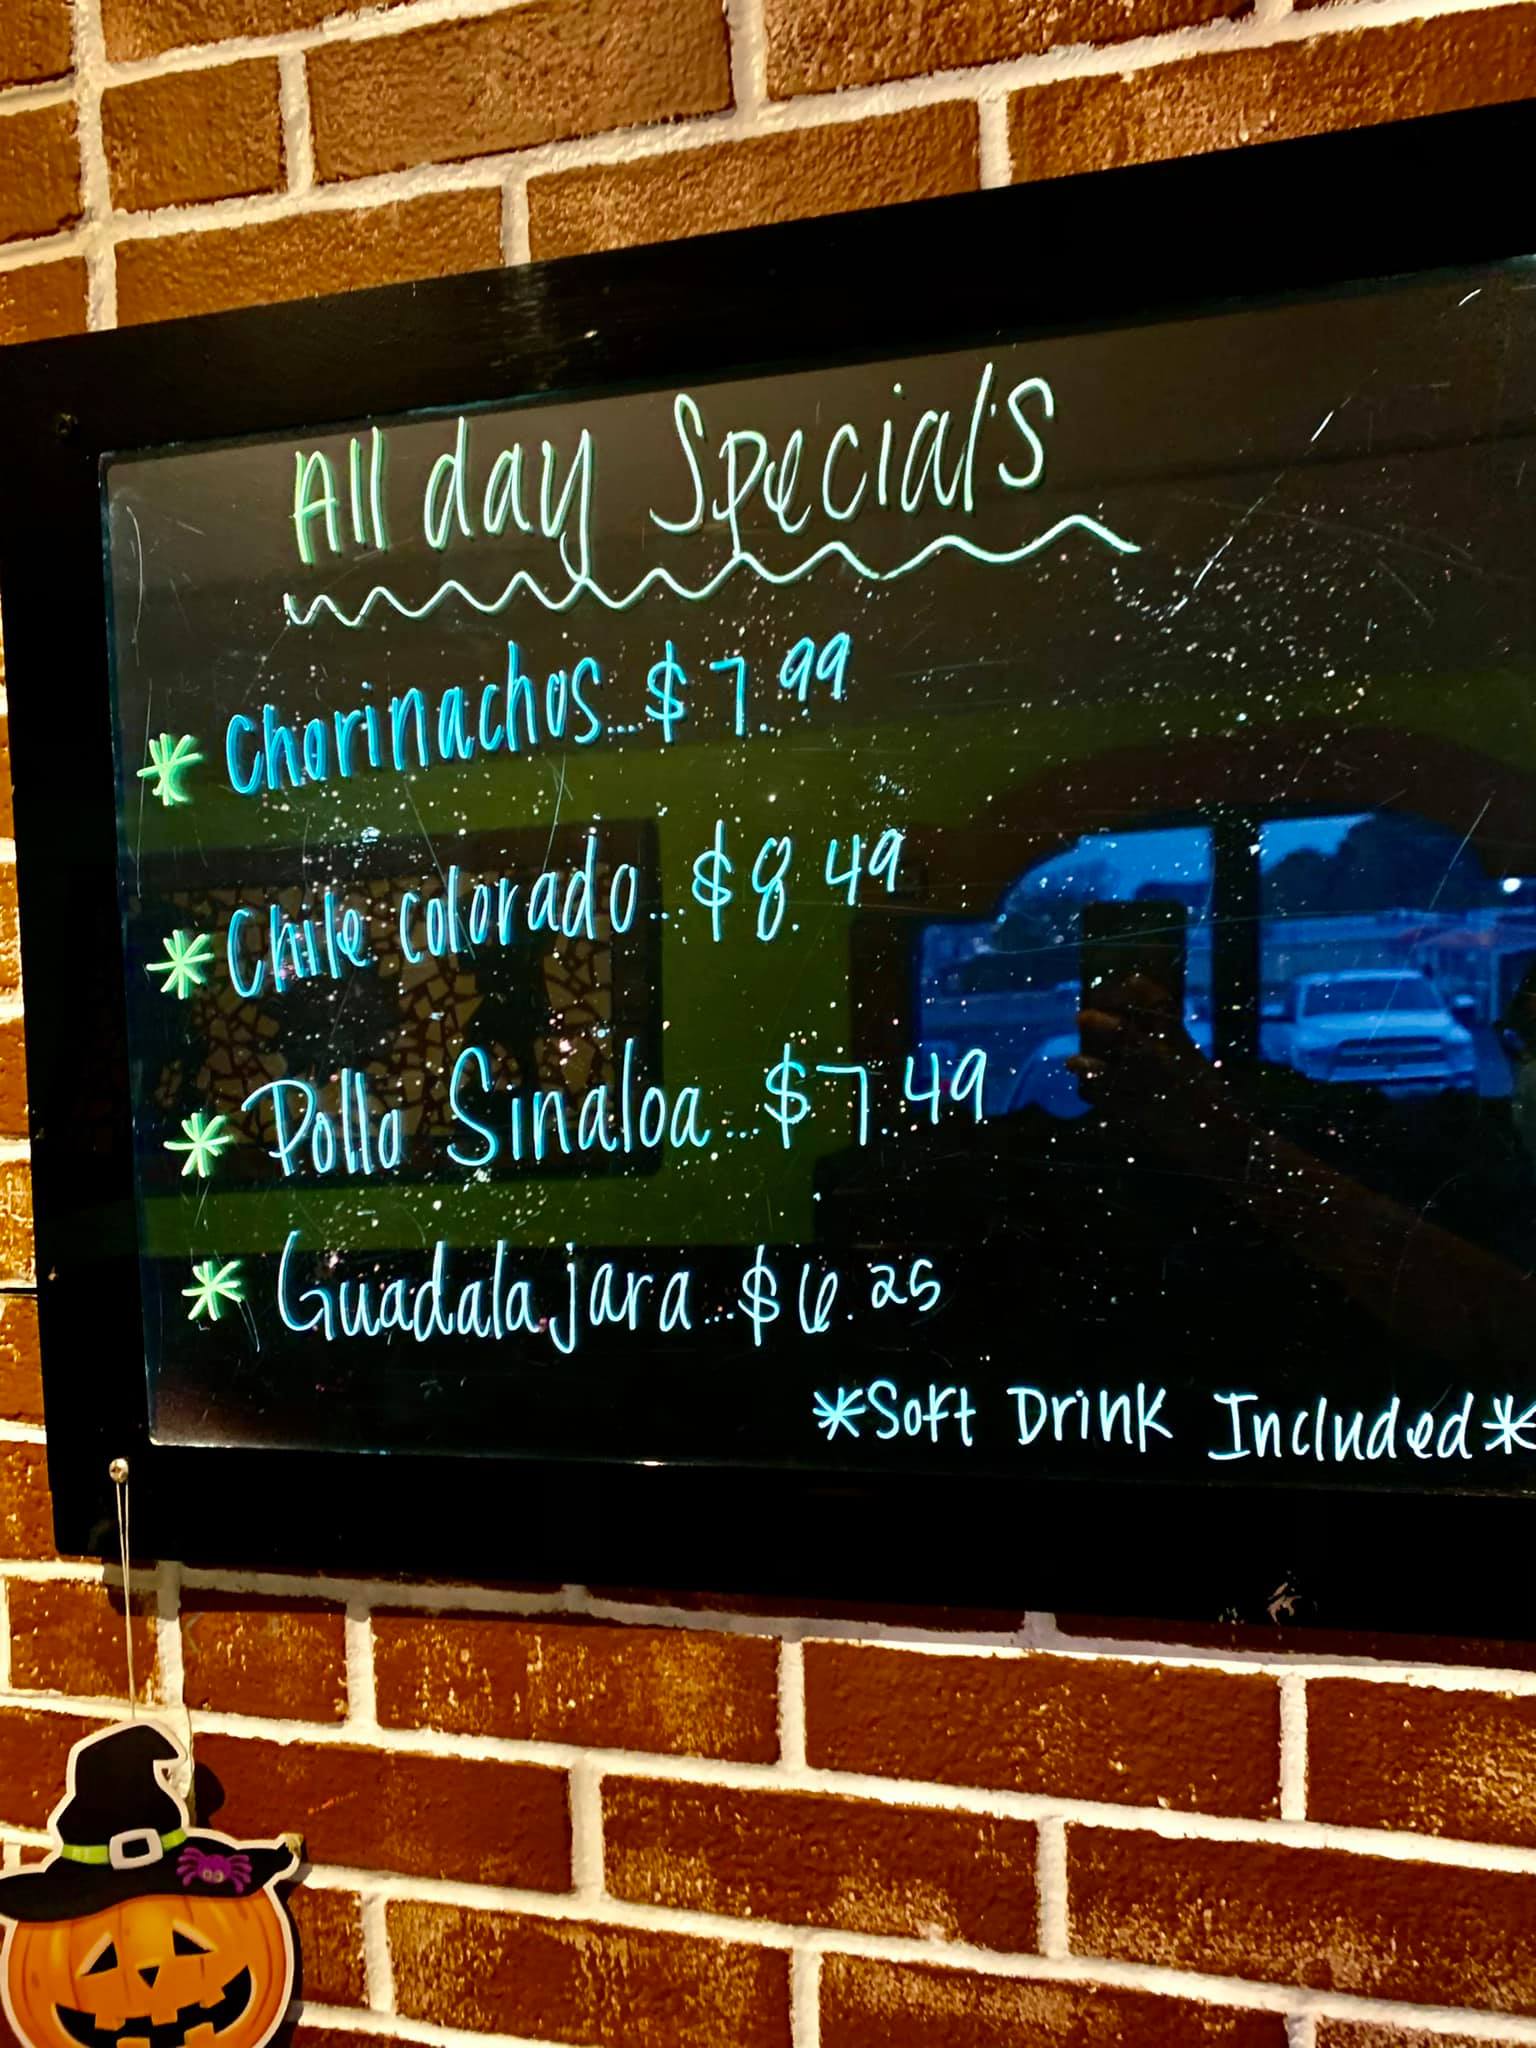 All day Special's
* Chorinachos...$7.99
* Chile colorado...$8.49
* Pollo Sinaloa...$7.49
* Guadalajara...$6.25
*Soft Drink Included*